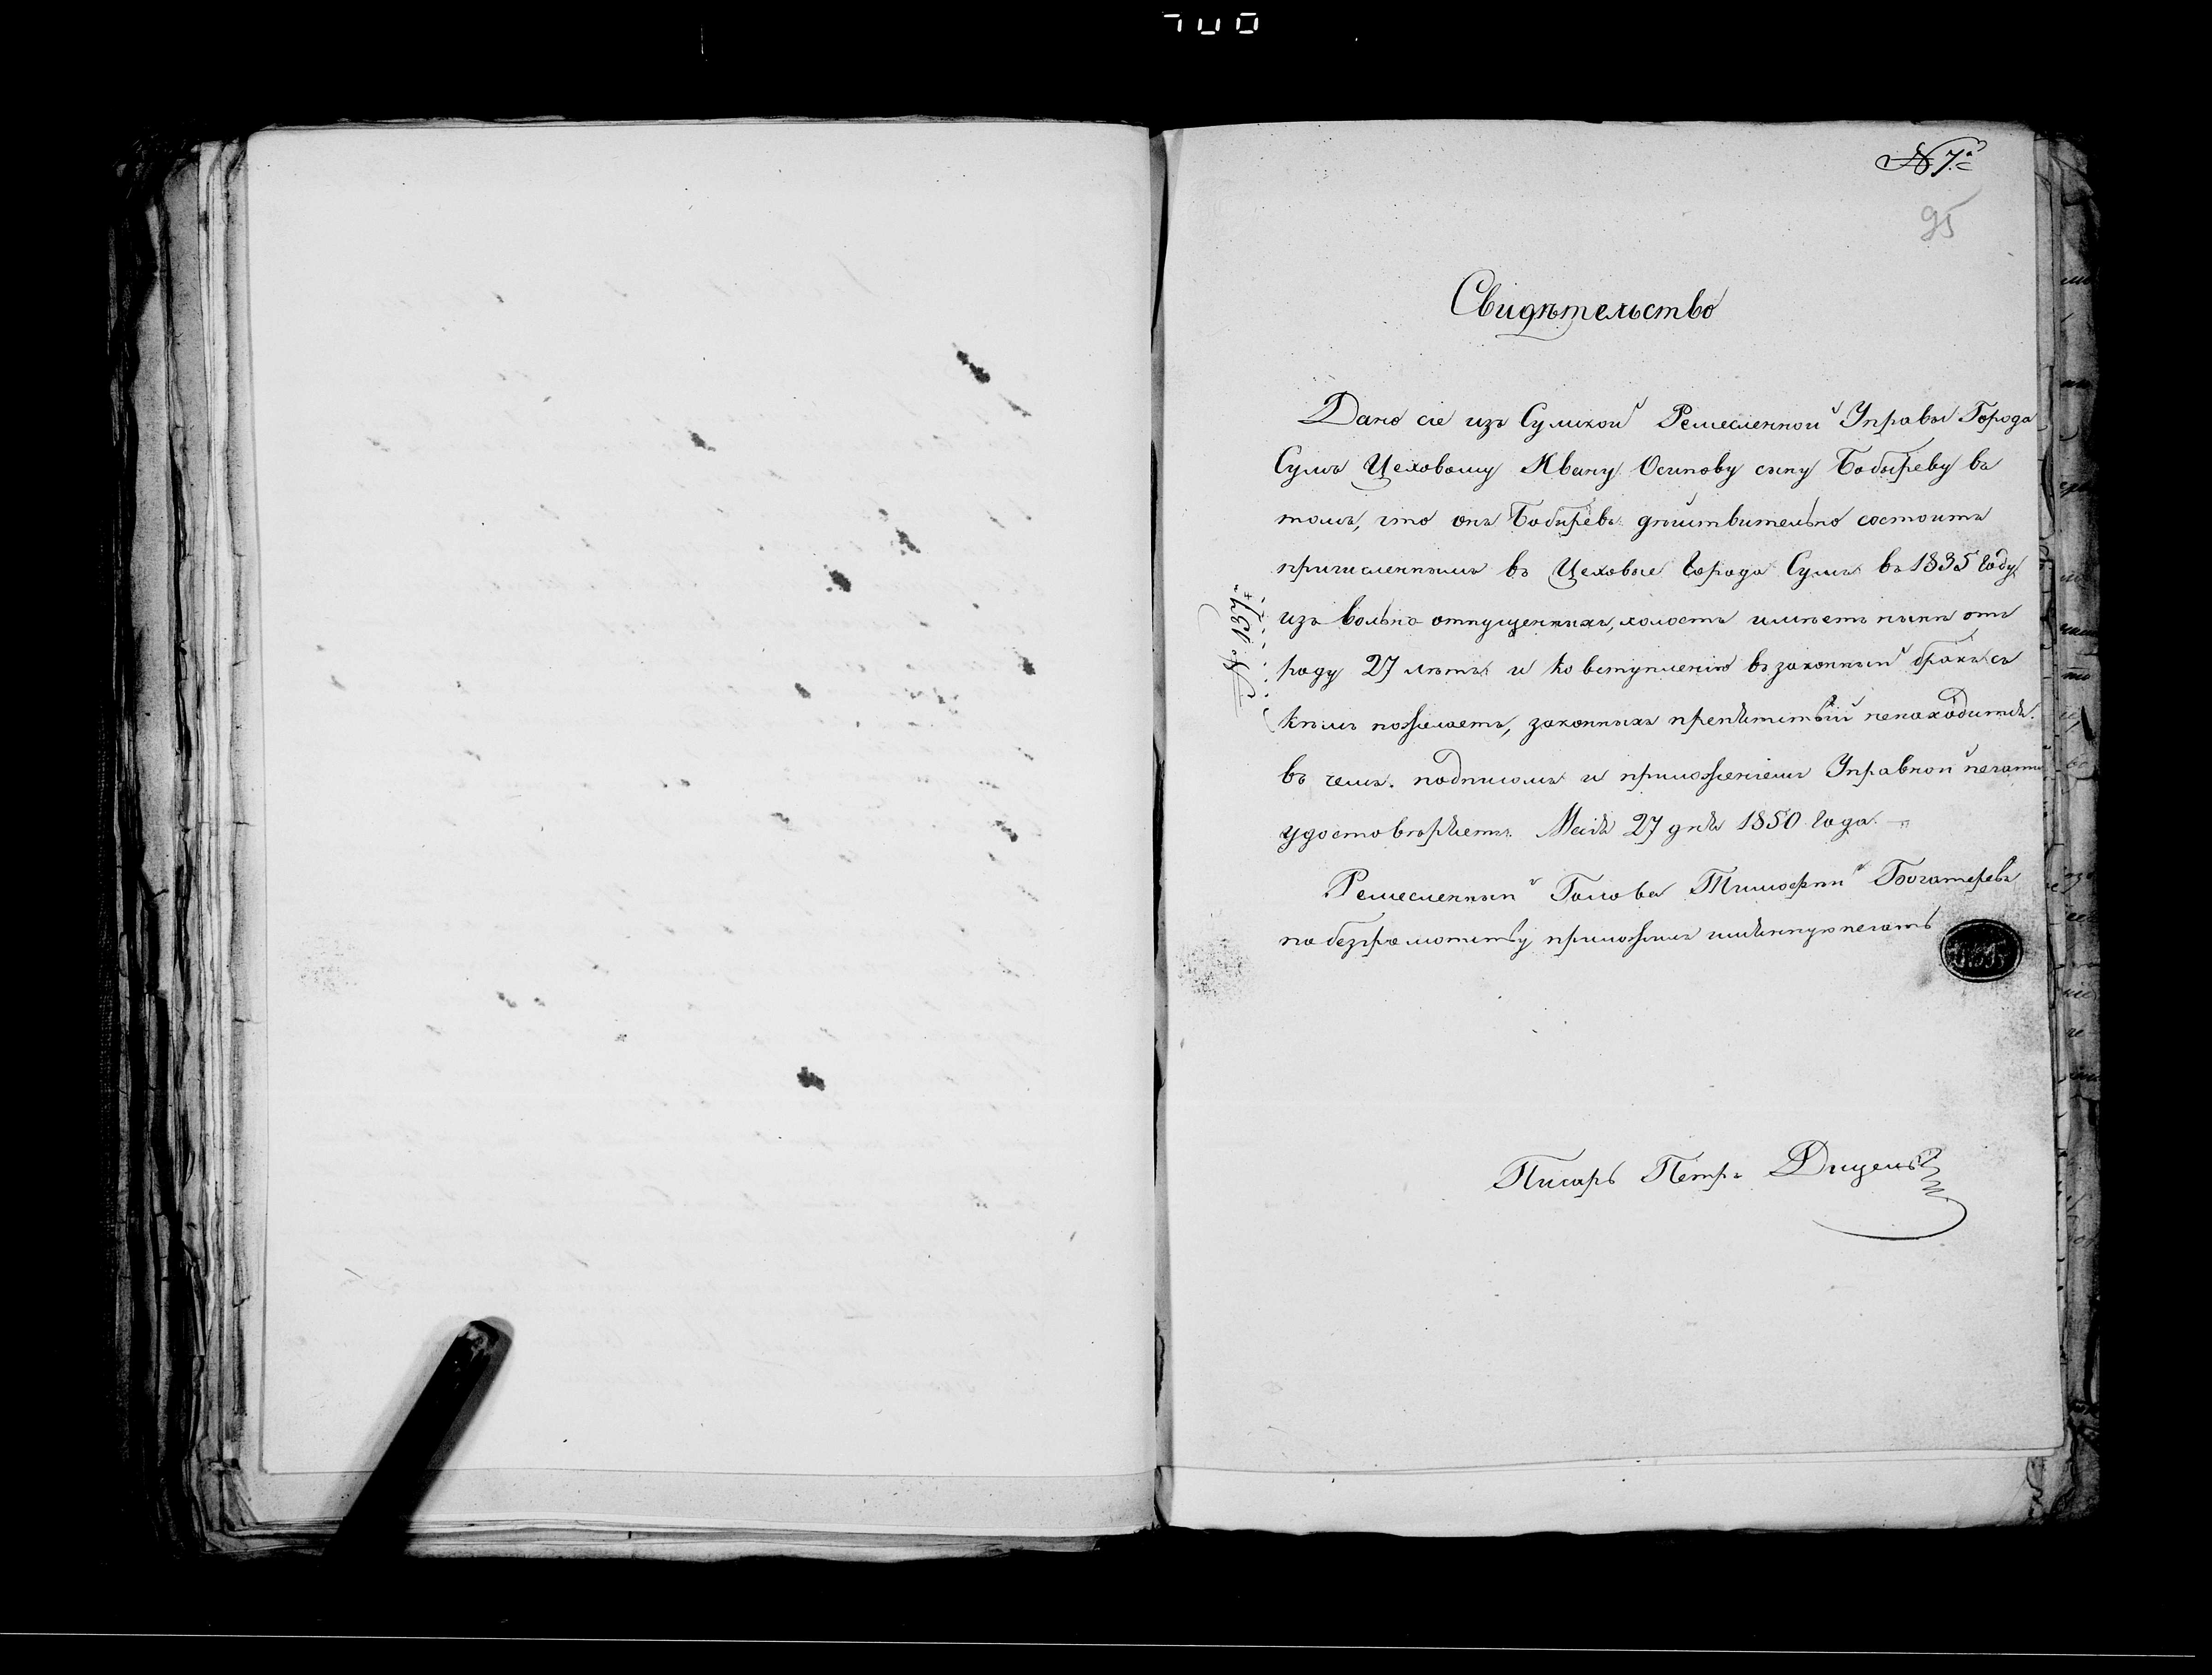 № 7й
95
Свидѣтельство
Дано сіе изъ Сумской Ремесленной Управы Города
Сумъ Цеховому Ивану Осипову сыну Бобыреву въ
томъ, что онъ Бобыревъ дѣйствительно состоитъ
причисленнымъ въ Цеховые города Сумъ въ 1835 году
изъ вольно отпущенныхъ, холостъ имѣетъ нынѣ отъ
роду 27 лѣтъ и ко вступленію въ законный бракъ съ
кѣмъ пожелаетъ, законныхъ препятствій ненаходится.
въ чемъ. подписомъ и приложеніемъ Управной печати
удостовѣряетъ. Маія 27 дня 1850 года.
№ 137
Ремесленный Голова Тимофѣй Богатыревъ
по безграмотству приложилъ имянную печать
Писарь Петръ